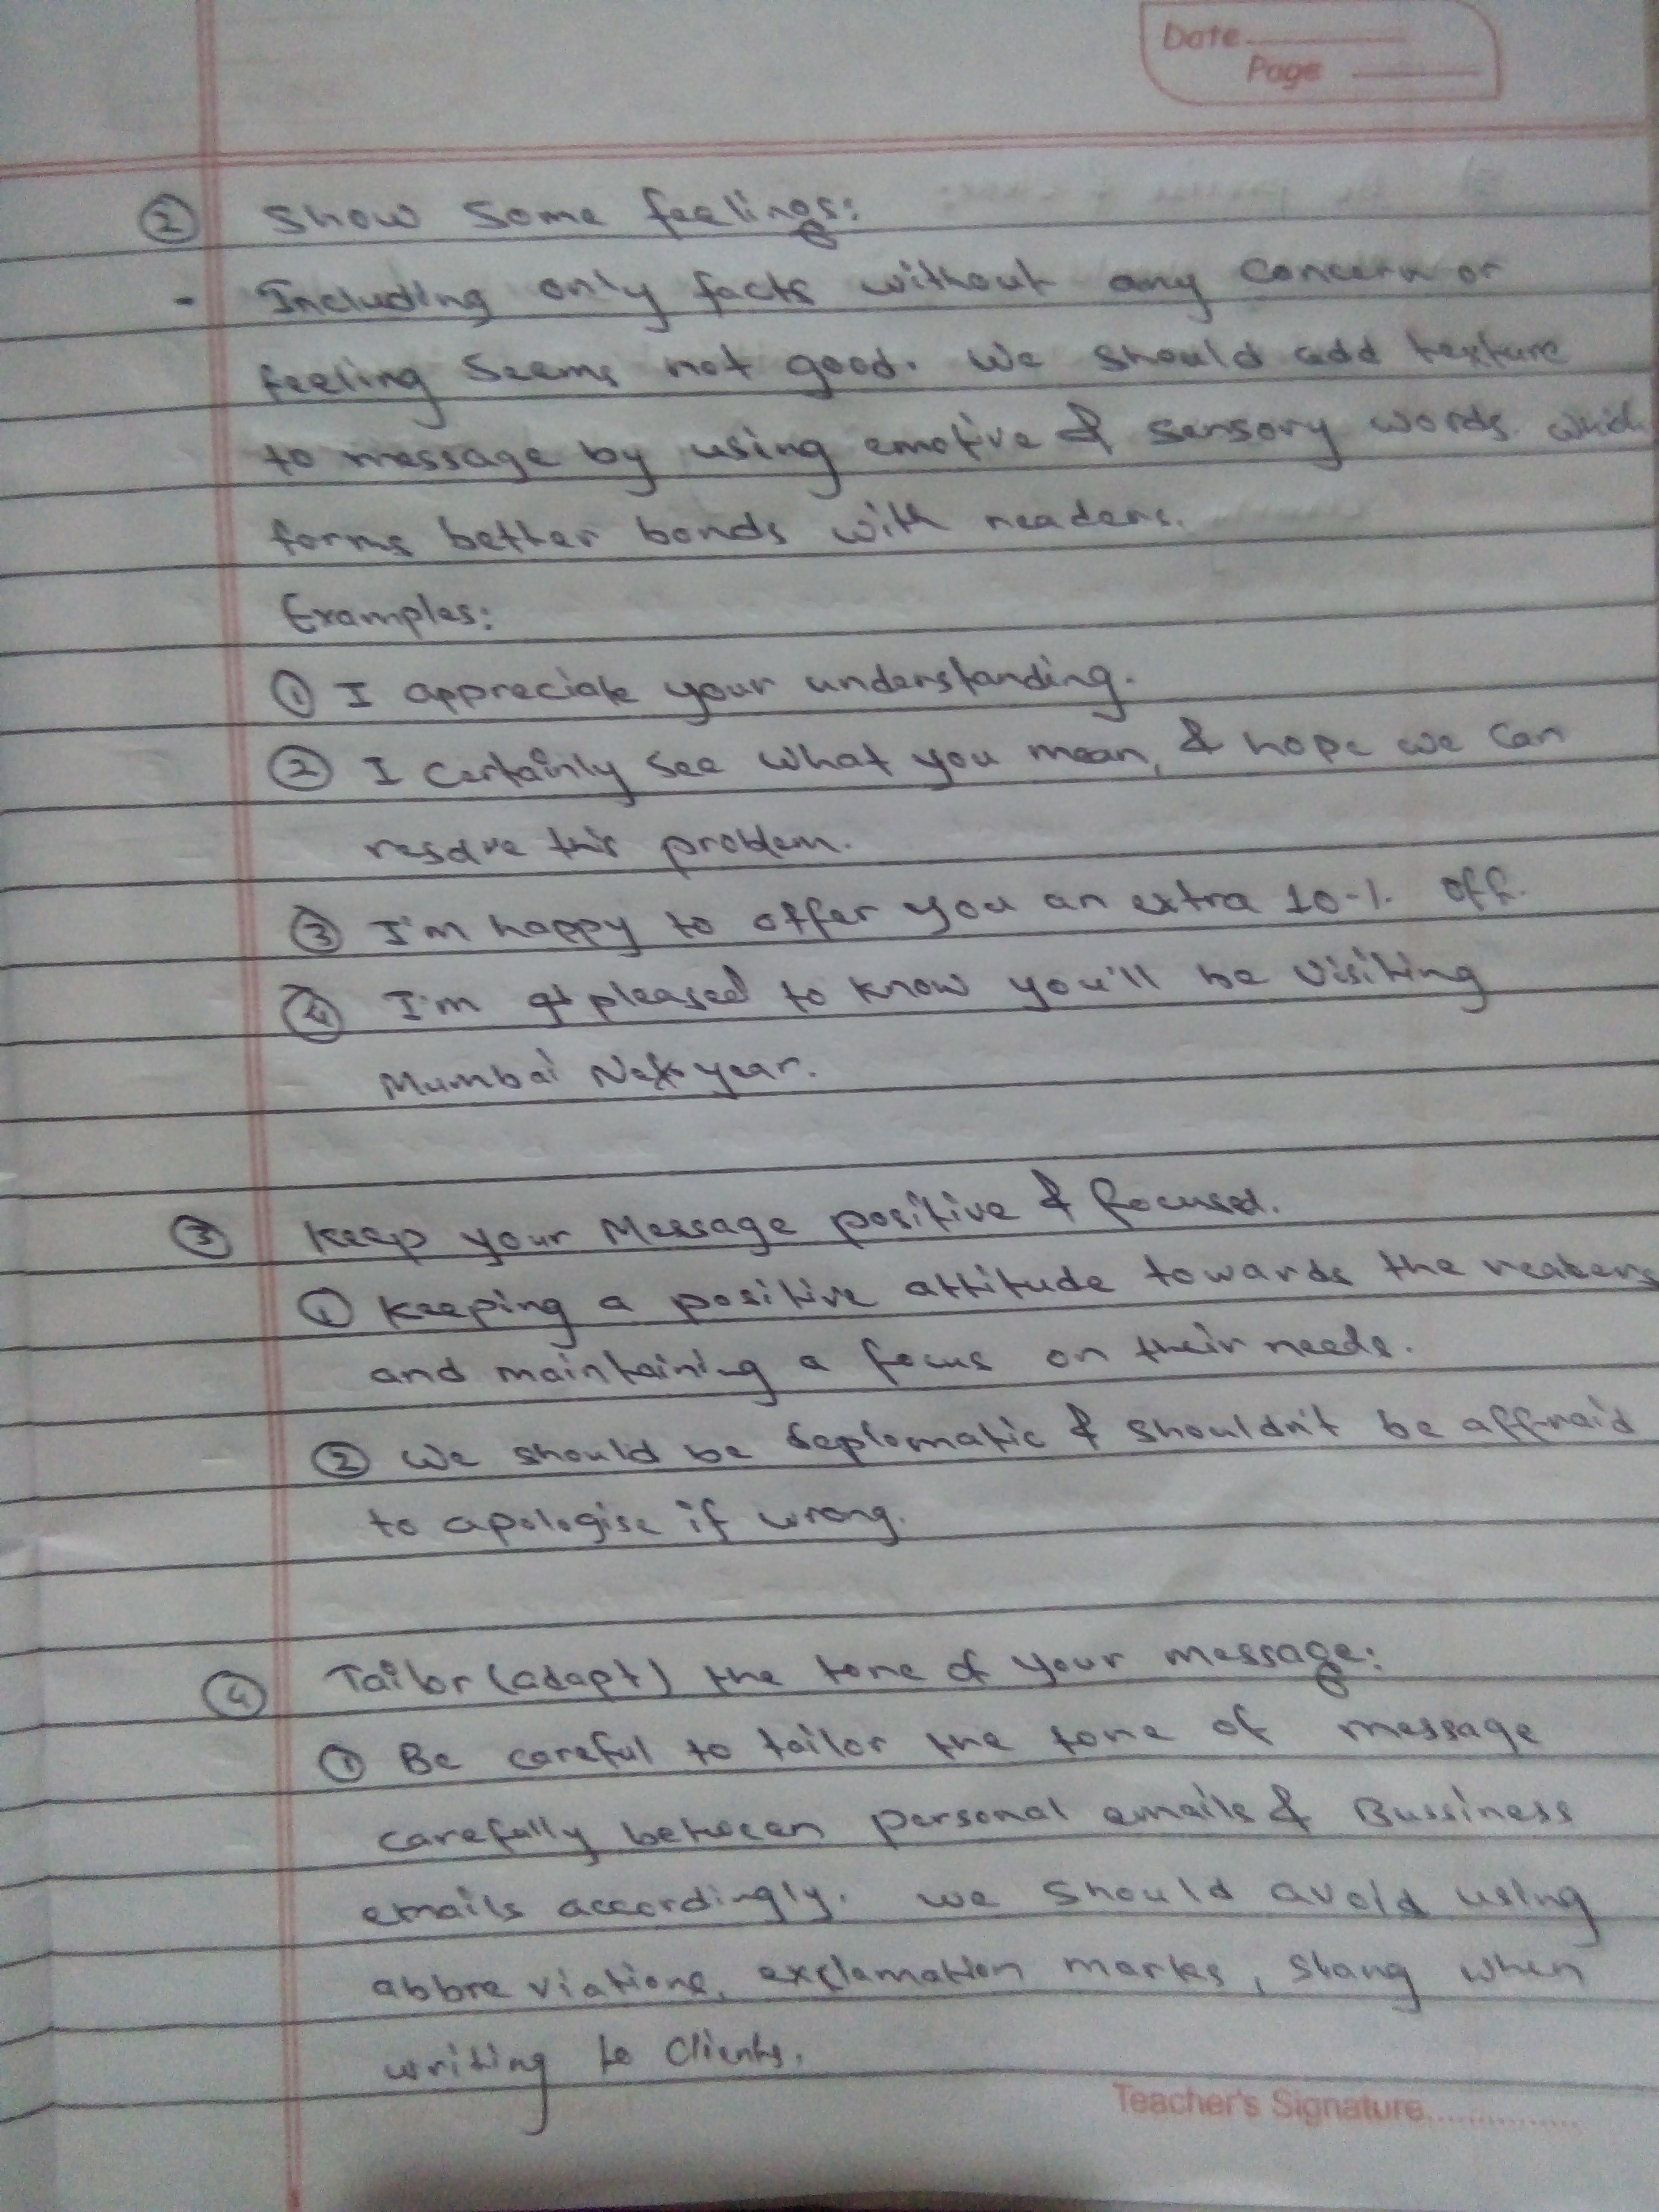 Date
Page
② Show Some feelings:
- Including only facts without any concern or
feeling Seems not good. We should add texture
to message by using emotive & sensory words which
forms better bonds with readers.
Examples:
① I appreciate your understanding.
② I Certainly see what you mean, & hope we can
resolve this problem.
③ I'm happy to offer you an extra 10% off.
④ I'm pleased to know you'll be visiting
Mumbai Next year.
③ Keep your Message positive & focused.
① Keeping a positive attitude towards the readers
and maintaining a focus on their needs.
② We should be deplomatic & shouldn't be affraid
to apologise if wrong.
④ Tailor (adapt) the tone of your message:
① Be careful to tailor the tone of message
carefully between personal emails & Bussiness
emails accordingly. we should avoid using
abbreviations, exclamation marks, slang when
writing to Clients.
Teacher's Signature...............